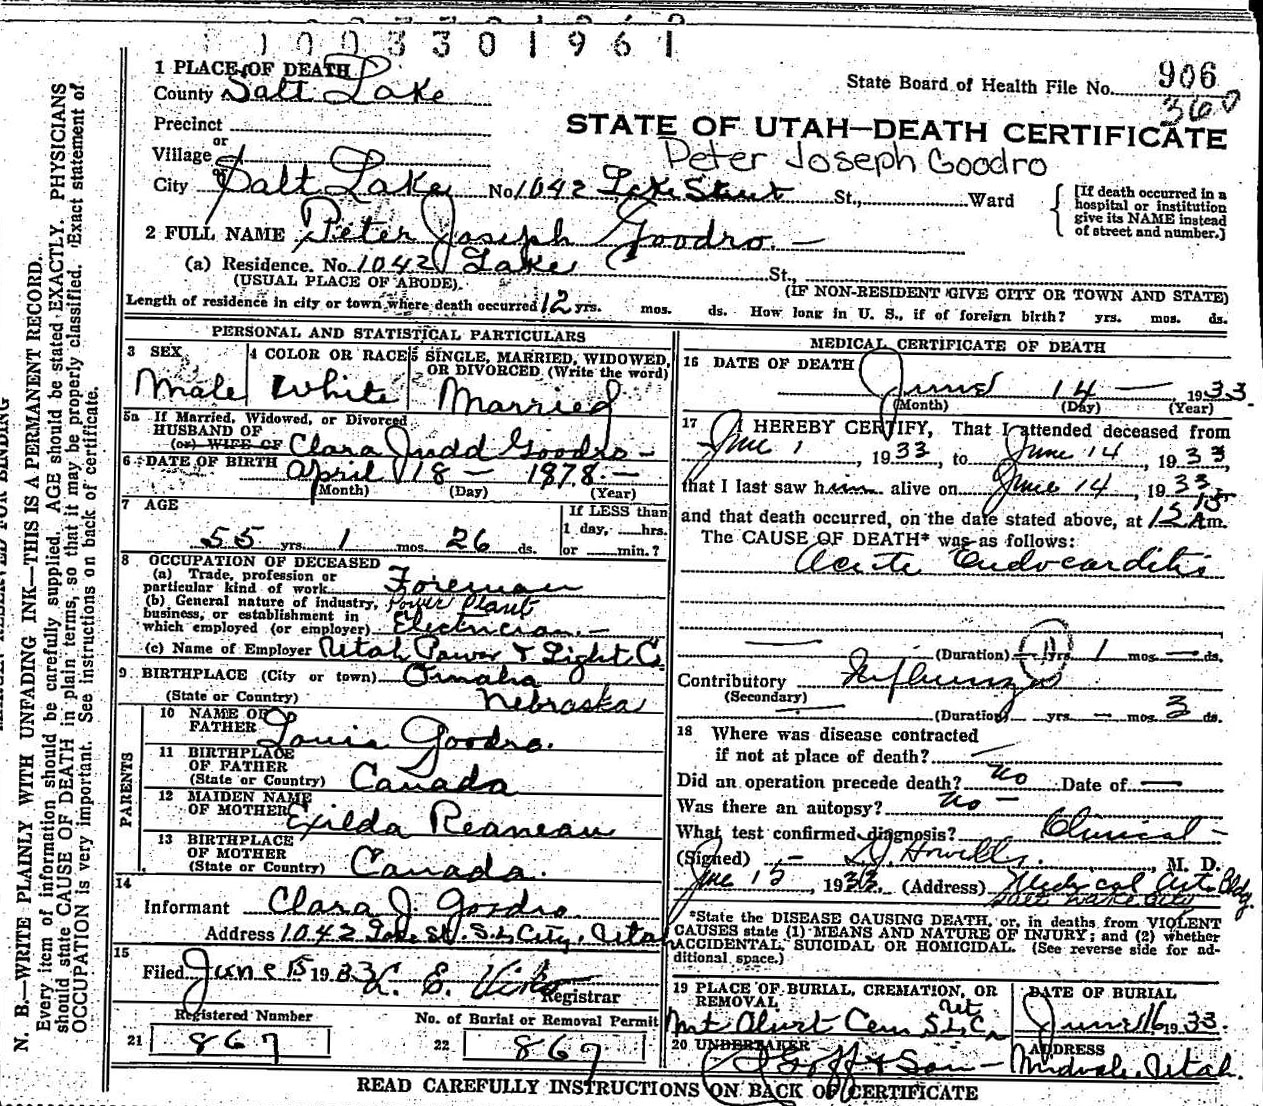 1003301961
1 PLACE OF DEATH
County Salt Lake
State Board of Health File No. 906
360
Precinct
STATE OF UTAH—DEATH CERTIFICATE
or
Village
Peter Joseph Goodro
City Salt Lake No. 1042 Lake Street St., Ward
[If death occurred in a
hospital or institution
give its NAME instead
of street and number.]
2 FULL NAME Peter Joseph Goodro.
(a) Residence. No. 1042 Lake St.
(USUAL PLACE OF ABODE)
(IF NON-RESIDENT GIVE CITY OR TOWN AND STATE)
Length of residence in city or town where death occurred 12 yrs. mos. ds. How long in U. S., if of foreign birth? yrs. mos. ds.
PERSONAL AND STATISTICAL PARTICULARS
3 SEX
Male
4 COLOR OR RACE
White
5 SINGLE, MARRIED, WIDOWED,
OR DIVORCED (Write the word)
Married
5a If Married, Widowed, or Divorced
HUSBAND OF
(or) WIFE OF Clara Judd Goodro
6 DATE OF BIRTH April 18 - 1878. -
(Month) (Day) (Year)
7 AGE
55 yrs. 1 mos. 26 ds.
If LESS than
1 day, hrs.
or min.?
8 OCCUPATION OF DECEASED
(a) Trade, profession or
particular kind of work Foreman
(b) General nature of industry, Power Plant
business, or establishment in
which employed (or employer) Electrician.-
(c) Name of Employer Utah Power & Light Co
9 BIRTHPLACE (City or town) Omaha
(State or Country) Nebraska
PARENTS
10 NAME OF
FATHER Louis Goodro.
11 BIRTHPLACE
OF FATHER
(State or Country) Canada
12 MAIDEN NAME
OF MOTHER Exilda Reaneau
13 BIRTHPLACE
OF MOTHER
(State or Country) Canada.
14
Informant Clara J Goodro
Address 1042 Lake St. S.L. City, Utah
15
Filed June 15 1933 L. E.
Registrar
Registered Number
21 867
No. of Burial or Removal Permit
22 867
MEDICAL CERTIFICATE OF DEATH
16 DATE OF DEATH
June 14 - 1933.
(Month) (Day) (Year)
17 I HEREBY CERTIFY, That I attended deceased from
June 1, 1933, to June 14, 1933,
that I last saw him alive on June 14, 1933
and that death occurred, on the date stated above, at 12 15 Am.
The CAUSE OF DEATH* was as follows:
Acute Endocarditis
(Duration) yrs. 1 mos. - ds.
Contributory Influenza
(Secondary)
(Duration) yrs. - mos. 3 ds.
18 Where was disease contracted
if not at place of death? -
Did an operation precede death? no Date of -
Was there an autopsy? no -
What test confirmed diagnosis? Clinical -
(Signed) Howells. M. D.
June 15, 1933. (Address) Medical Arts Bldg.
Salt Lake City
*State the DISEASE CAUSING DEATH, or, in deaths from VIOLENT
CAUSES state (1) MEANS AND NATURE OF INJURY; and (2) whether
ACCIDENTAL, SUICIDAL OR HOMICIDAL. (See reverse side for ad-
ditional space.)
19 PLACE OF BURIAL, CREMATION, OR
REMOVAL Ut
Mt Olivet Cem S.L.Co
DATE OF BURIAL
June 16 1933.
20 UNDERTAKER
Goff & Son -
ADDRESS
Midvale, Utah.
READ CAREFULLY INSTRUCTIONS ON BACK OF CERTIFICATE
MARGIN RESERVED FOR BINDING
N. B.—WRITE PLAINLY WITH UNFADING INK—THIS IS A PERMANENT RECORD.
Every item of information should be carefully supplied. AGE should be stated EXACTLY. PHYSICIANS
should state CAUSE OF DEATH in plain terms, so that it may be properly classified. Exact statement of
OCCUPATION is very important. See instructions on back of certificate.